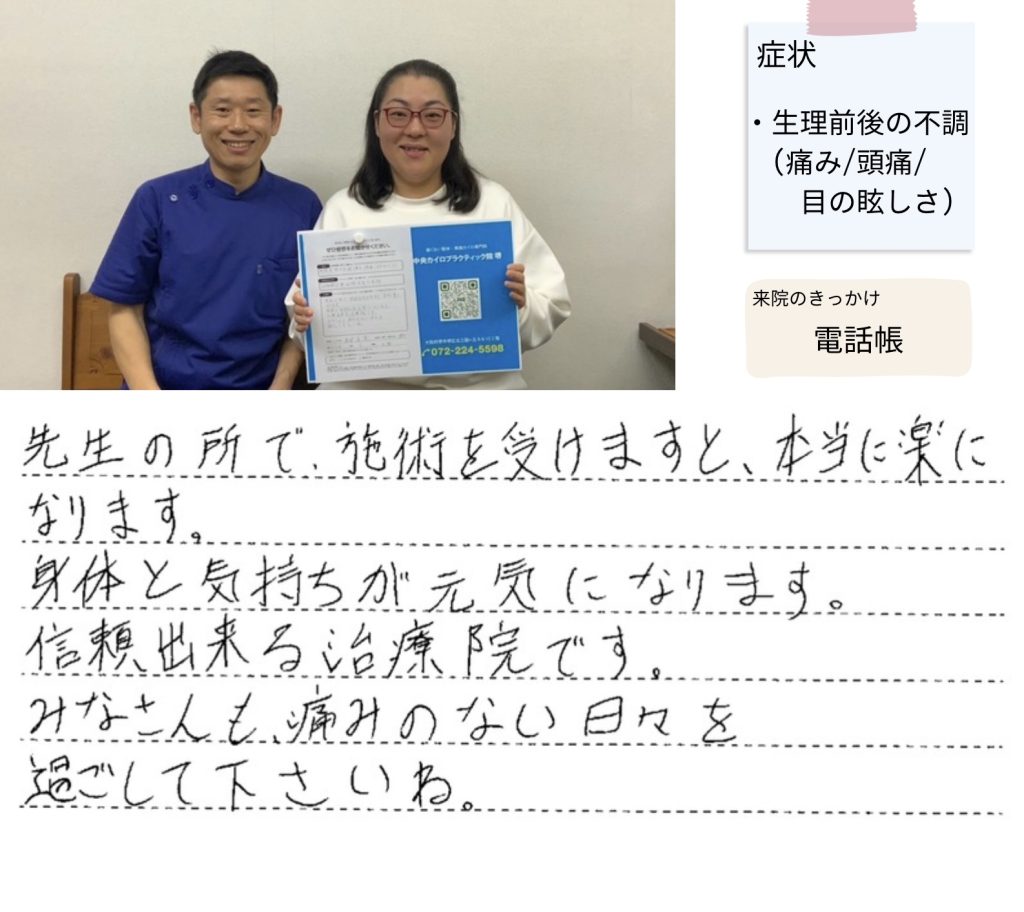 症状
・生理前後の不調
（痛み/頭痛/
目の眩しさ）
来院のきっかけ
電話帳
ぜひ感想をお聞かせください。
中央カイロプラクティック院 堺
072-224-5598
先生の所で、施術を受けますと、本当に楽に
なります。
身体と気持ちが元気になります。
信頼出来る治療院です。
みなさんも、痛みのない日々を
過ごして下さいね。